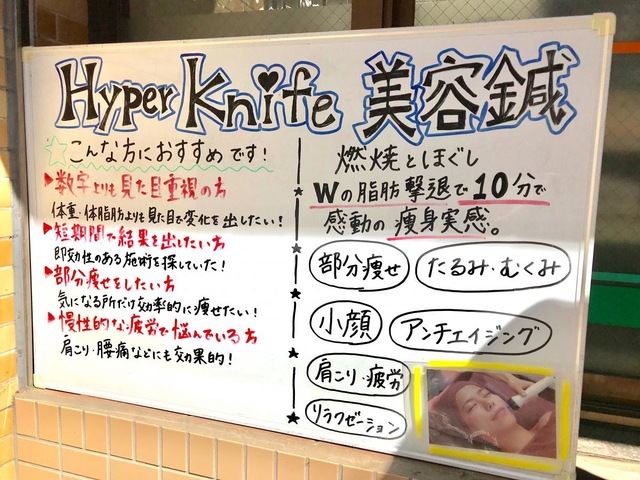 Hyper Knife 美容鍼
こんな方におすすめです!
▶数字よりも見た目重視の方
体重・体脂肪よりも見た目の変化を出したい!
▶短期間で結果を出したい方
即効性のある施術を探していた!
▶部分痩せをしたい方
気になる所だけ効率的に痩せたい!
▶慢性的な疲労で悩んでいる方
肩こり・腰痛などにも効果的!
燃焼とほぐし
Wの脂肪撃退で10分で
感動の痩身実感。
部分痩せ
たるみ・むくみ
小顔
アンチエイジング
肩こり・疲労
リラクゼーション